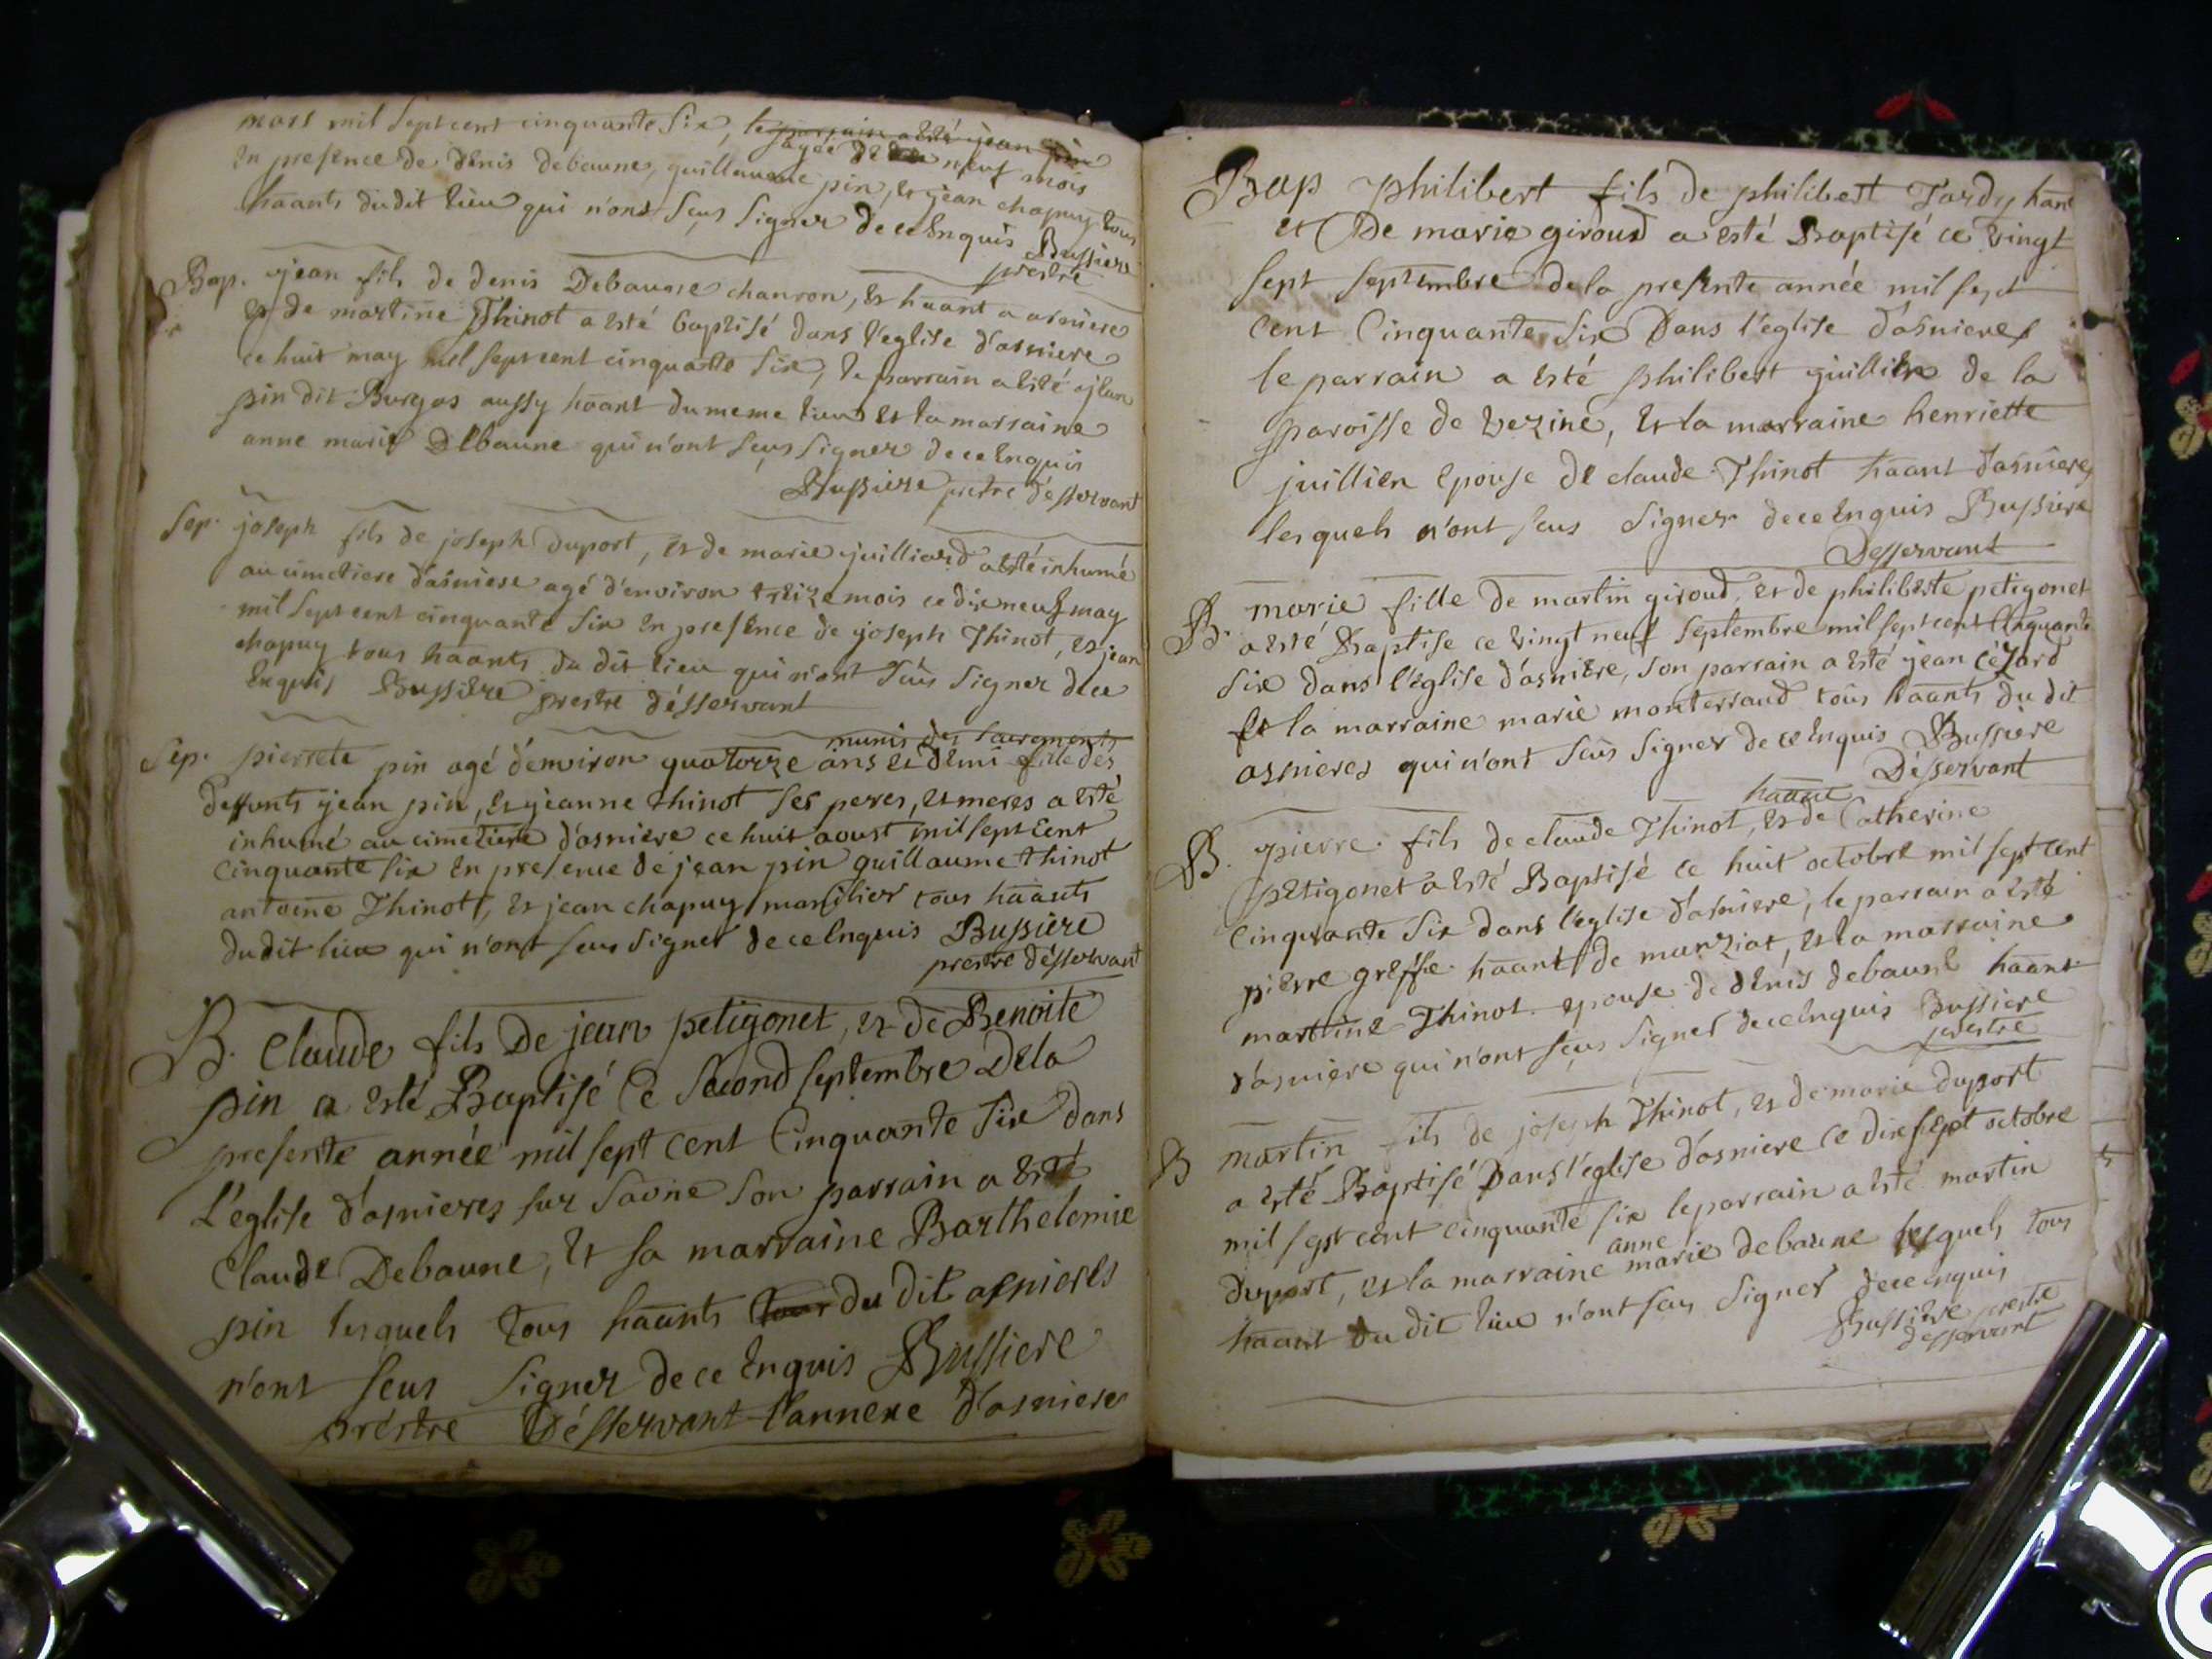 mars mil sept cent cinquante six, le parrain a esté jean pin
agée de neuf mois
en presence de denis debaune, guillaume pin, et jean chapuy tous
haants dudit lieu qui n'ont seus signer de ce enquis Bussiere
prestre
Bap. jean fils de denis Debaune charron, et haant a asniere
et de martine Thinot a esté baptisé dans l'eglise d'asniere
ce huit may mil sept cent cinquante six, le parrain a esté jean
pin dit Burgos aussy haant du meme lieu et la marraine
anne marie Debaune qui n'ont seus signer de ce enquis
Bussiere prestre déservant
Sep. joseph fils de joseph duport, et de marie juilliard a esté inhumé
au cimetiere d'asniere agé d'environ treize mois ce dix neuf may
mil sept cent cinquante six en presence de joseph Thinot, et jean
chapuy tous haants du dit lieu qui n'ont seus signer de ce
enquis Bussiere prestre désservant
munis des sacrements
Sep. pierrete pin agé d'environ quatorze ans et demi fille des
deffunts jean pin, et jeanne thinot ses peres, et meres a esté
inhumé au cimetiere d'asniere ce huit aoust mil sept cent
cinquante six en presence de jean pin guillaume thinot
antoine Thinot, et jean chapuy marsilier tous haants
du dit lieu qui n'ont seus signer de ce enquis Bussiere
prestre désservant
B. Claude fils de jean petigonet, et de Benoite
pin a esté Baptisé ce second septembre de la
presente année mil sept cent cinquante six dans
l'église d'asnieres sur saone son parrain a esté
Claude Debaune, et sa marraine Barthelemie
pin lesquels tous haants tous du dit asnieres
n'ont seus signer de ce enquis Bussiere
préstre Désservant l'annexe d'asnieres
Bap philibert fils de philibert Tardy haant
et De marie giroud a esté Baptisé ce vingt
sept septembre de la presente année mil sept
cent Cinquante six Dans l'eglise d'asnieres
le parrain a esté philibert guillien de la
paroisse de vezine, et la marraine henriette
juillien epouse de claude Thinot haant d'asnieres
lesquels n'ont seus signer de ce enquis Bussiere
Desservant
B. marie fille de martin giroud, et de philiberte petigonet
a esté Baptise ce vingt neuf septembre mil sept cent Cinquante
six dans l'église d'asniére, son parrain a esté jean Cézard
Et la marraine marie monterraud tous haants du dit
asnieres qui n'ont seus signer de ce enquis Bussiere
Désservant
haant
B. pierre fils de claude Thinot, et de Catherine
petigonet a esté Baptisé ce huit octobre mil sept cent
Cinquante six dans l'eglise d'asniere, le parrain a esté
pierre greffe haant de manziat, et la marraine
martine Thinot epouse de denis debaune haant
d'asniere qui n'ont seus signer de ce enquis Bussiere
prestre
B martin fils de joseph Thinot, et de marie duport
a esté Baptisé Dans l'eglise d'asniere ce dix sept octobre
mil sept cent cinquante six le parrain a esté martin
anne
duport, et la marraine marie debaune lesquels tous
haant du dit lieu n'ont seus signer de ce enquis
Bussiere prestre
desservant